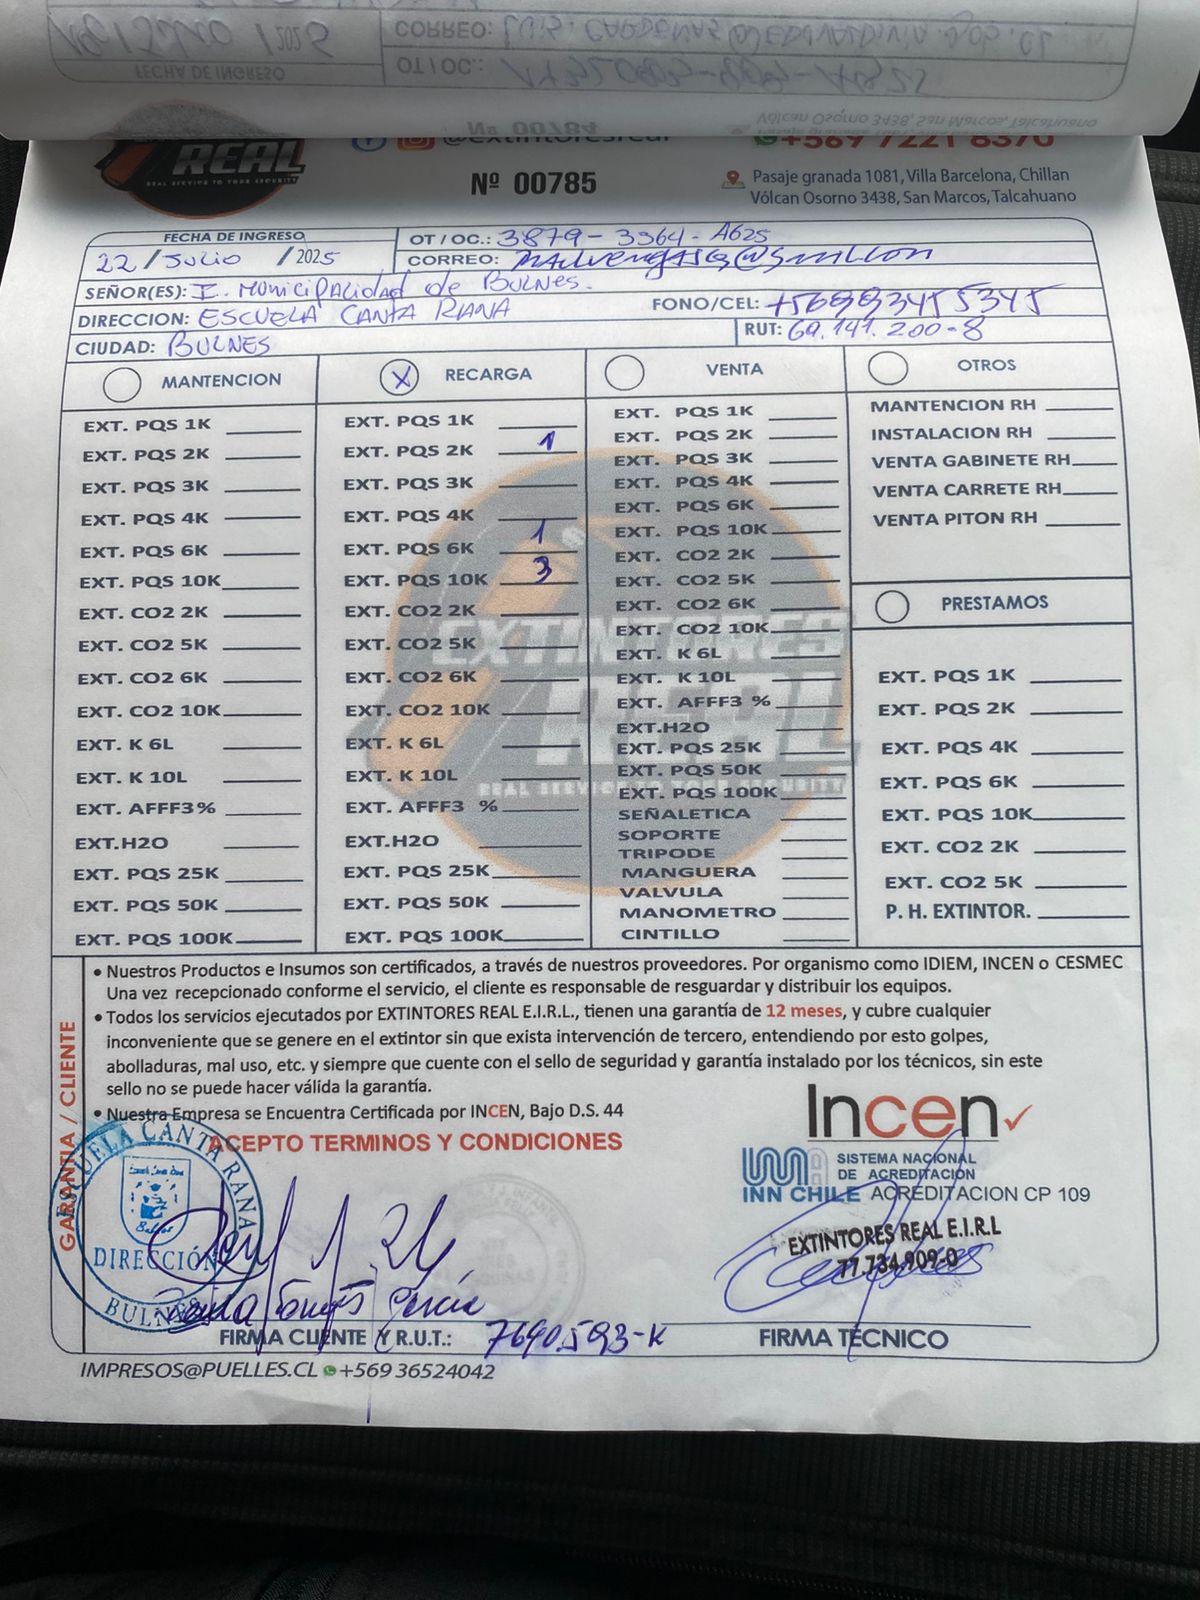 FECHA DE INGRESO
OT / OC.:
CORREO:
REAL
REAL SERVICE TO YOUR SECURITY
@extintoresreal
+569 7221 8370
Nº 00785
Pasaje granada 1081, Villa Barcelona, Chillan
Vólcan Osorno 3438, San Marcos, Talcahuano
FECHA DE INGRESO
22 / JULIO / 2025
OT / OC.: 3879-3364-A625
CORREO:
SEÑOR(ES): I. MUNICIPALIDAD de BULNES.
FONO/CEL: +56993455345
DIRECCION: ESCUELA CANTA RANA
RUT: 69.141.200-8
CIUDAD: BULNES
MANTENCION
EXT. PQS 1K
EXT. PQS 2K
EXT. PQS 3K
EXT. PQS 4K
EXT. PQS 6K
EXT. PQS 10K
EXT. CO2 2K
EXT. CO2 5K
EXT. CO2 6K
EXT. CO2 10K
EXT. K 6L
EXT. K 10L
EXT. AFFF3%
EXT.H2O
EXT. PQS 25K
EXT. PQS 50K
EXT. PQS 100K
X RECARGA
EXT. PQS 1K
EXT. PQS 2K 1
EXT. PQS 3K
EXT. PQS 4K
EXT. PQS 6K 1
EXT. PQS 10K 3
EXT. CO2 2K
EXT. CO2 5K
EXT. CO2 6K
EXT. CO2 10K
EXT. K 6L
EXT. K 10L
EXT. AFFF3 %
EXT.H2O
EXT. PQS 25K
EXT. PQS 50K
EXT. PQS 100K
VENTA
EXT. PQS 1K
EXT. PQS 2K
EXT. PQS 3K
EXT. PQS 4K
EXT. PQS 6K
EXT. PQS 10K
EXT. CO2 2K
EXT. CO2 5K
EXT. CO2 6K
EXT. CO2 10K
EXT. K 6L
EXT. K 10L
EXT. AFFF3 %
EXT.H2O
EXT. PQS 25K
EXT. PQS 50K
EXT. PQS 100K
SEÑALETICA
SOPORTE
TRIPODE
MANGUERA
VALVULA
MANOMETRO
CINTILLO
OTROS
MANTENCION RH
INSTALACION RH
VENTA GABINETE RH
VENTA CARRETE RH
VENTA PITON RH
PRESTAMOS
EXT. PQS 1K
EXT. PQS 2K
EXT. PQS 4K
EXT. PQS 6K
EXT. PQS 10K
EXT. CO2 2K
EXT. CO2 5K
P. H. EXTINTOR.
EXTINTORES
REAL
REAL SERVICE TO YOUR SECURITY
GARANTIA / CLIENTE
• Nuestros Productos e Insumos son certificados, a través de nuestros proveedores. Por organismo como IDIEM, INCEN o CESMEC
Una vez recepcionado conforme el servicio, el cliente es responsable de resguardar y distribuir los equipos.
• Todos los servicios ejecutados por EXTINTORES REAL E.I.R.L., tienen una garantía de 12 meses, y cubre cualquier
inconveniente que se genere en el extintor sin que exista intervención de tercero, entendiendo por esto golpes,
abolladuras, mal uso, etc. y siempre que cuente con el sello de seguridad y garantía instalado por los técnicos, sin este
sello no se puede hacer válida la garantía.
• Nuestra Empresa se Encuentra Certificada por INCEN, Bajo D.S. 44
ACEPTO TERMINOS Y CONDICIONES
Incen
INN CHILE
SISTEMA NACIONAL
DE ACREDITACIÓN
ACREDITACION CP 109
ESCUELA CANTA RANA
DIRECCIÓN
BULNES
EXTINTORES REAL E.I.R.L
77.734.909-0
García
FIRMA CLIENTE Y R.U.T.: 7690593-K
FIRMA TÉCNICO
IMPRESOS@PUELLES.CL +569 36524042